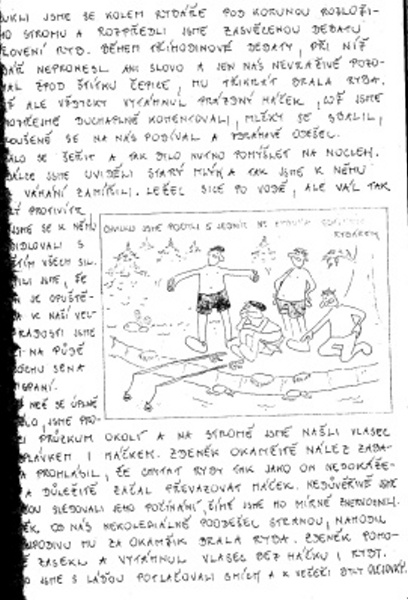 UKLI JSME SE KOLEM RYBÁŘE POD KORUNOU ROZLOŽI-
HO STROMU A ROZPŘEDLI JSME ZASVĚCENOU DEBATU
LOVENÍ RYB. BĚHEM TŘÍHODINOVÉ DEBATY, PŘI NÍŽ
ÁŘ NEPRONESL ANI SLOVO A JEN NÁS NEVRAŽIVĚ POZO-
VAL ZPOD ŠTÍTKU ČEPICE, MU TŘIKRÁT BRALA RYBA.
ALE VŽDYCKY VYTÁHNUL PRÁZDNÝ HÁČEK, COŽ JSME
DUCHAPLNĚ KOMENTOVALI, MLČKY SE SBALIL,
SE NA NÁS PODÍVAL A ODEŠEL.
ALO SE ŠEŘIT A TAK BYLO NUTNO POMÝŠLET NA NOCLEH.
JSME UVIDĚLI STARÝ MLÝN A TAK JSME K NĚMU
VÁHÁNÍ ZAMÍŘILI. LEŽEL SICE PO VODĚ, ALE VÁL TAK
PROTIVÍTR
JSME SE K NĚMU
DIDLOVALI S
ĚTÍM VŠECH SIL.
ILI JSME, ŽE
SE OPUŠTĚ-
A K NAŠÍ VEL-
RADOSTI JSME
NA PŮDĚ
OCHU SENA
SPANÍ.
CHVILKU JSME POBYLI S JEDNÍM
RYBÁŘEM
NEŽ SE ÚPLNĚ
LO, JSME PRO-
PRŮZKUM OKOLÍ A NA STROMĚ JSME NAŠLI VLASEC
PLÁVKEM I HÁČKEM. ZDENĚK OKAMŽITĚ NÁLEZ ZABA-
A PROHLÁSIL, ŽE CHYTAT RYBY TAK JAKO ON NEDOKÁŽE-
A DŮLEŽITĚ ZAČAL PŘEVAZOVAT HÁČEK. NEDŮVĚŘIVĚ JSME
SLEDOVALI JEHO POČÍNÁNÍ, ČÍMŽ JSME HO MÍRNĚ ZNERVÓZNILI.
OD NÁS NEKOLEGIÁLNĚ POODEŠEL STRANOU, NAHODIL
PODIVU MU ZA OKAMŽIK BRALA RYBA. ZDENĚK POHO-
ZASEKL A VYTÁHNUL VLASEC BEZ HÁČKU I RYBY.
JSME S LÁĎOU POTLAČOVALI SMÍCH A K VEČEŘI BYLY OLEJOVKY.